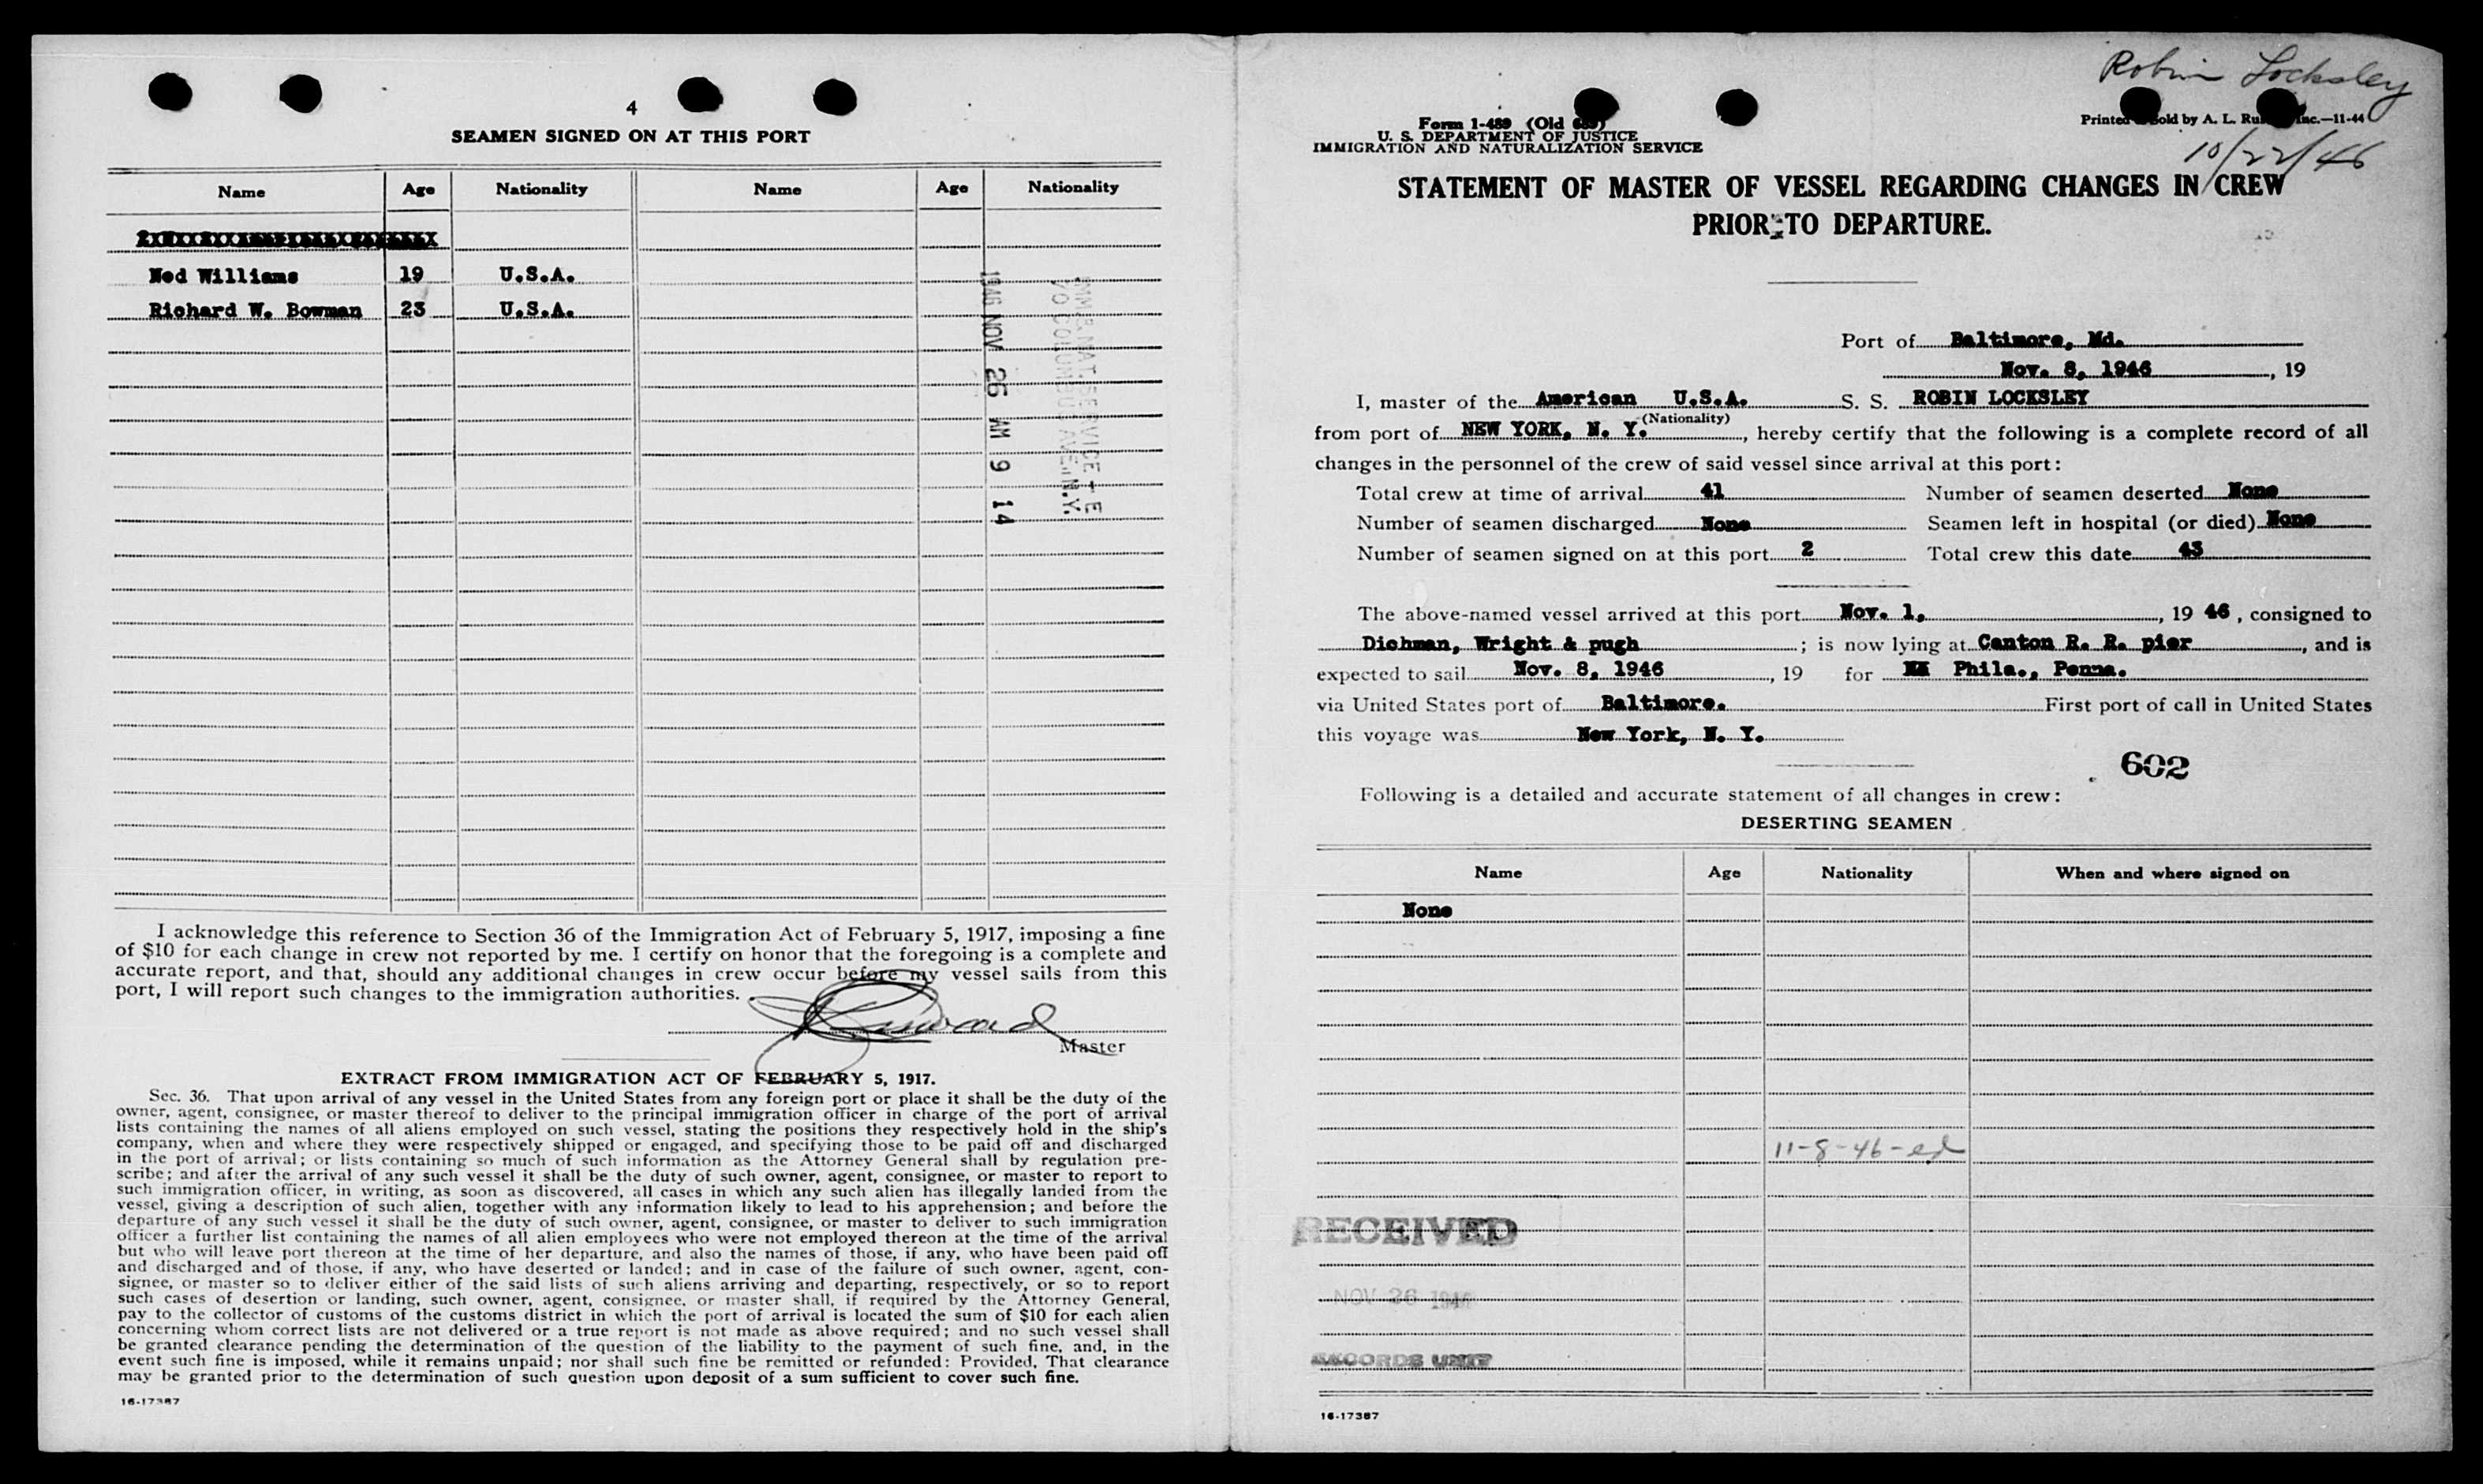 4
SEAMEN SIGNED ON AT THIS PORT
Name Age Nationality Name Age Nationality
Ned Williams 19 U.S.A.
Richard W. Bowman 23 U.S.A.
1946 NOV 26 AM 9 14
70 COLUMBUS AVE. N.Y.
I acknowledge this reference to Section 36 of the Immigration Act of February 5, 1917, imposing a fine
of $10 for each change in crew not reported by me. I certify on honor that the foregoing is a complete and
accurate report, and that, should any additional changes in crew occur before my vessel sails from this
port, I will report such changes to the immigration authorities.
Master
EXTRACT FROM IMMIGRATION ACT OF FEBRUARY 5, 1917.
Sec. 36. That upon arrival of any vessel in the United States from any foreign port or place it shall be the duty of the
owner, agent, consignee, or master thereof to deliver to the principal immigration officer in charge of the port of arrival
lists containing the names of all aliens employed on such vessel, stating the positions they respectively hold in the ship's
company, when and where they were respectively shipped or engaged, and specifying those to be paid off and discharged
in the port of arrival; or lists containing so much of such information as the Attorney General shall by regulation pre-
scribe; and after the arrival of any such vessel it shall be the duty of such owner, agent, consignee, or master to report to
such immigration officer, in writing, as soon as discovered, all cases in which any such alien has illegally landed from the
vessel, giving a description of such alien, together with any information likely to lead to his apprehension; and before the
departure of any such vessel it shall be the duty of such owner, agent, consignee, or master to deliver to such immigration
officer a further list containing the names of all alien employees who were not employed thereon at the time of the arrival
but who will leave port thereon at the time of her departure, and also the names of those, if any, who have been paid off
and discharged and of those, if any, who have deserted or landed; and in case of the failure of such owner, agent, con-
signee, or master so to deliver either of the said lists of such aliens arriving and departing, respectively, or so to report
such cases of desertion or landing, such owner, agent, consignee, or master shall, if required by the Attorney General,
pay to the collector of customs of the customs district in which the port of arrival is located the sum of $10 for each alien
concerning whom correct lists are not delivered or a true report is not made as above required; and no such vessel shall
be granted clearance pending the determination of the question of the liability to the payment of such fine, and, in the
event such fine is imposed, while it remains unpaid; nor shall such fine be remitted or refunded: Provided, That clearance
may be granted prior to the determination of such question upon deposit of a sum sufficient to cover such fine.
16-17387
Robin Locksley
Form I-489 (Old
Printed Sold by A. L. Inc.—11-44
U. S. DEPARTMENT OF JUSTICE
IMMIGRATION AND NATURALIZATION SERVICE
10/22/46
STATEMENT OF MASTER OF VESSEL REGARDING CHANGES IN CREW
PRIOR TO DEPARTURE.
Port of Baltimore, Md.
Nov. 8, 1946, 19
I, master of the American U.S.A. S. S. ROBIN LOCKSLEY
(Nationality)
from port of NEW YORK, N. Y., hereby certify that the following is a complete record of all
changes in the personnel of the crew of said vessel since arrival at this port:
Total crew at time of arrival 41 Number of seamen deserted None
Number of seamen discharged None Seamen left in hospital (or died) None
Number of seamen signed on at this port 2 Total crew this date 43
The above-named vessel arrived at this port Nov. 1, , 19 46, consigned to
Dichman, Wright & pugh ; is now lying at Canton R. R. pier, and is
expected to sail Nov. 8, 1946, 19 for Phila., Penna.
via United States port of Baltimore. First port of call in United States
this voyage was New York, N. Y.
602
Following is a detailed and accurate statement of all changes in crew:
DESERTING SEAMEN
Name Age Nationality When and where signed on
None
11-8-46-ed
RECEIVED
NOV 26 1946
RECORDS UNIT
16-17387